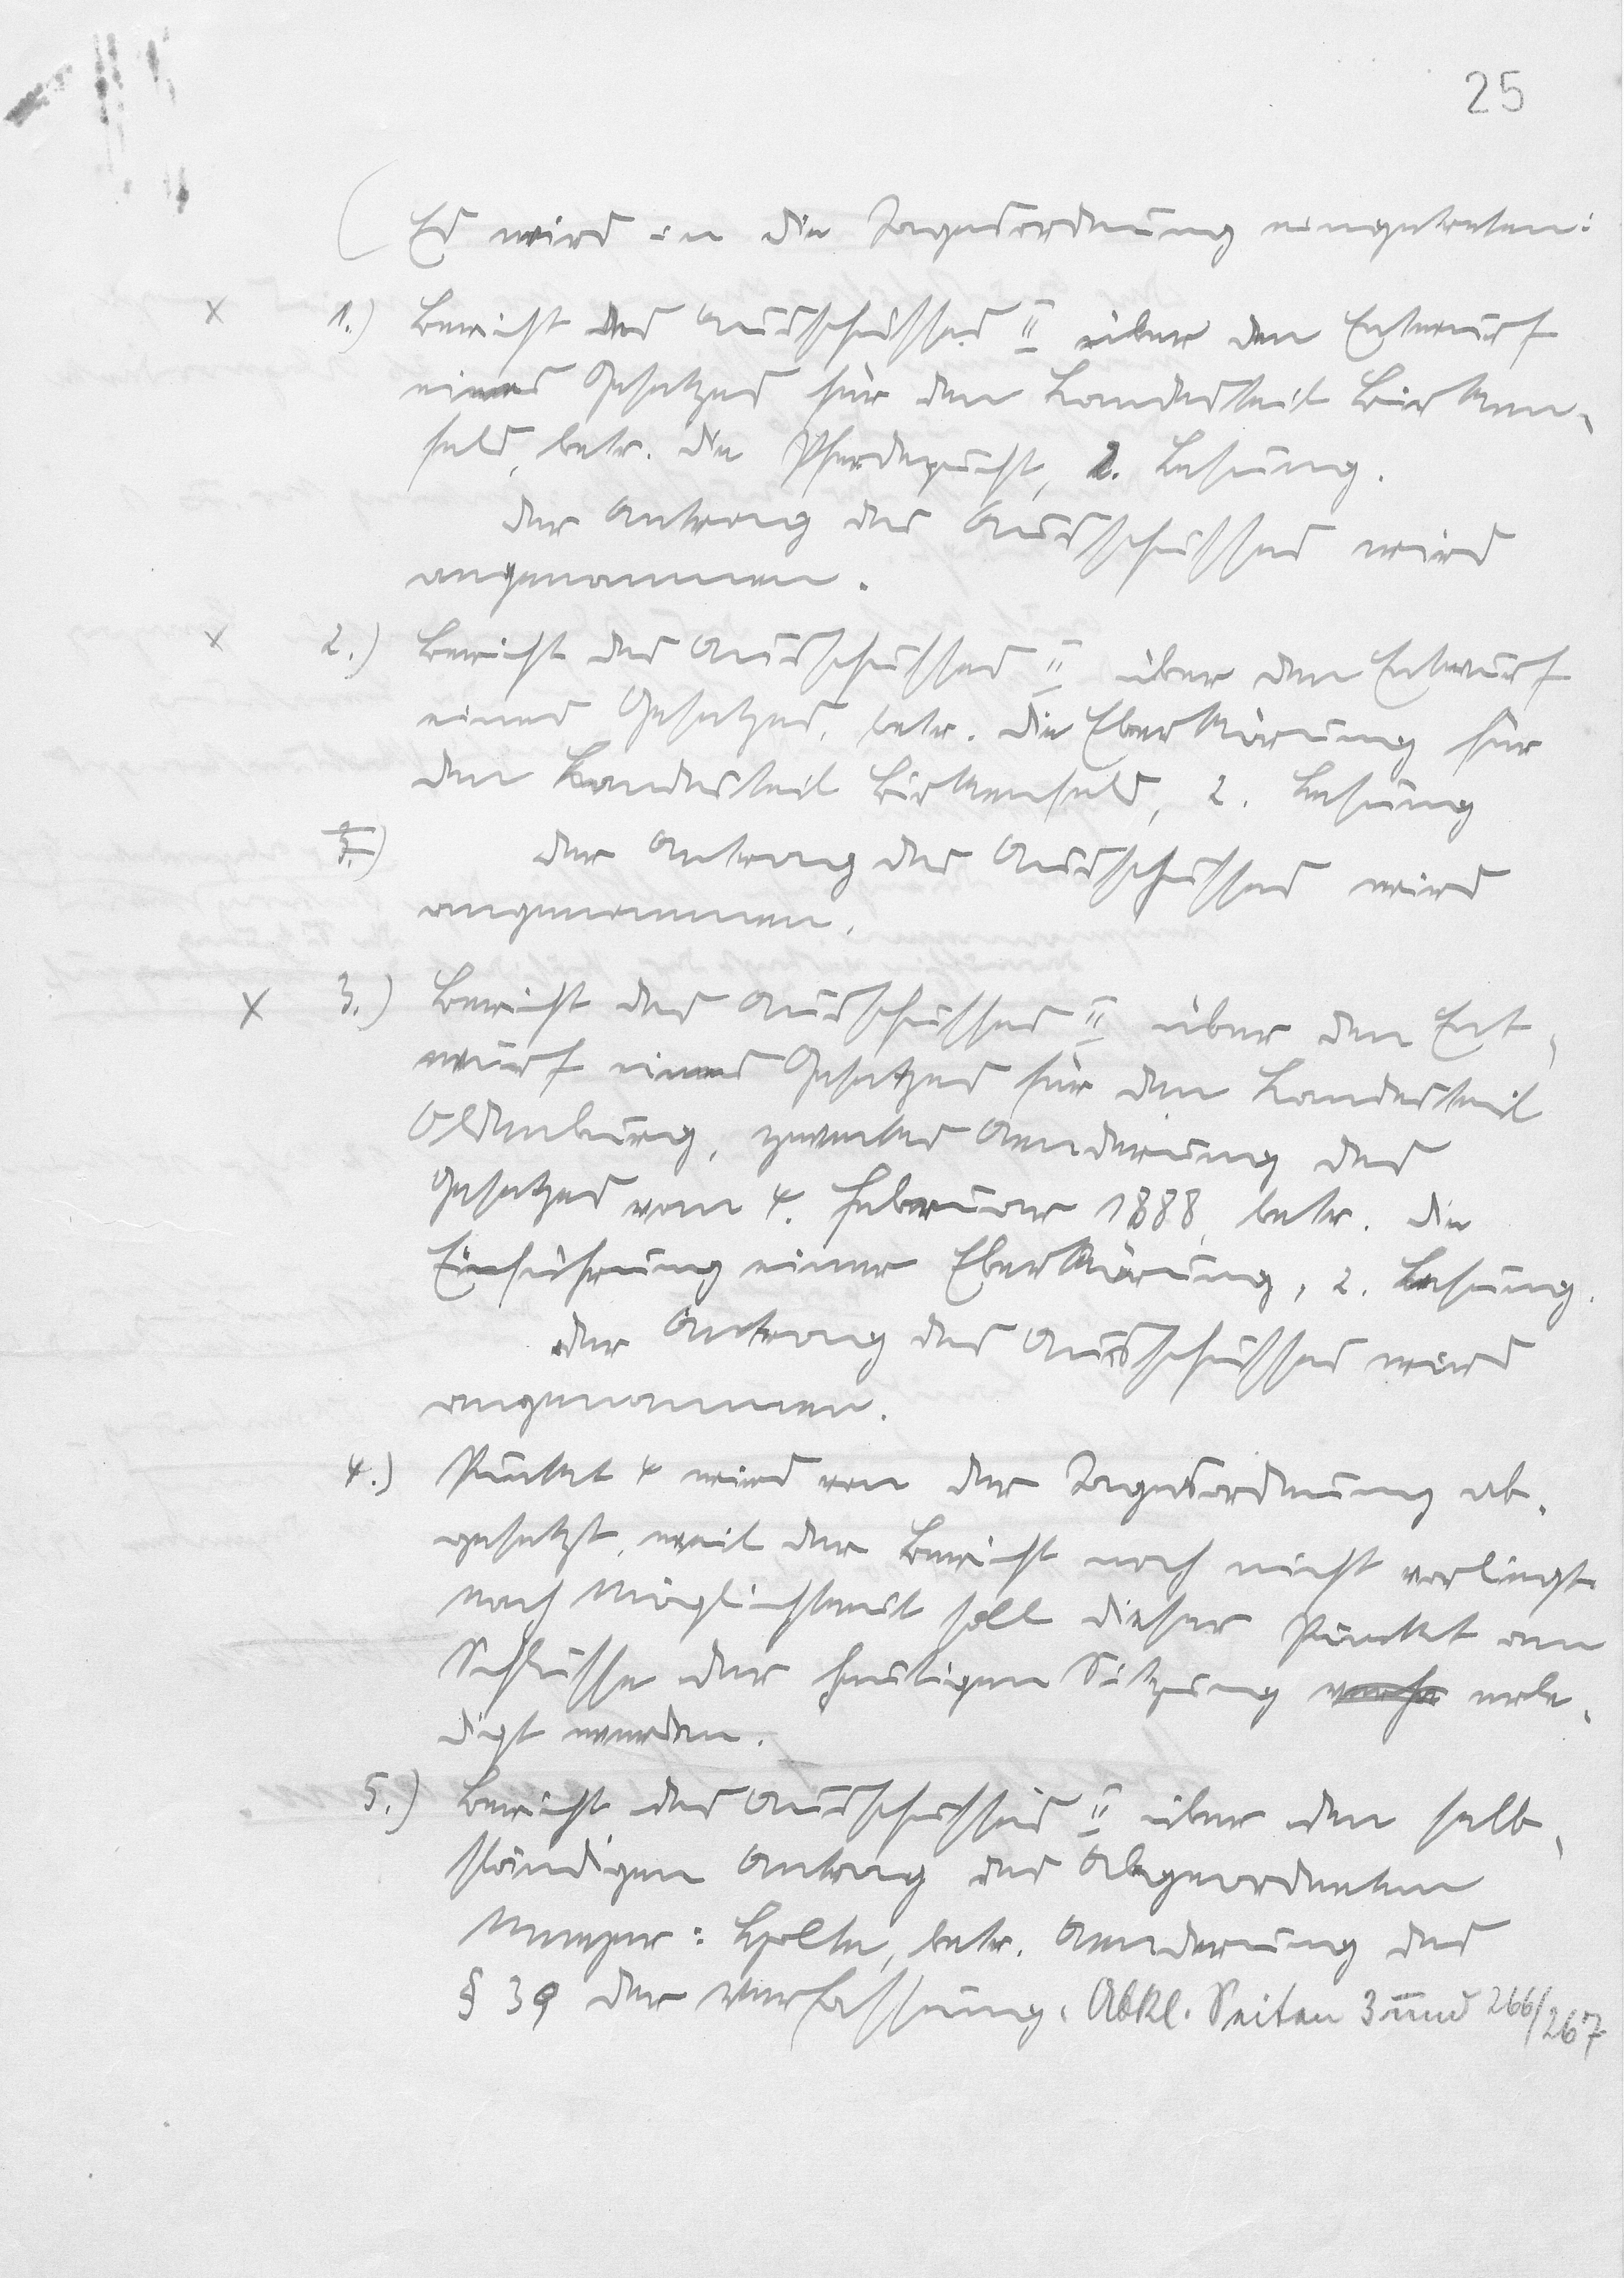 25
( Es wird in die Tagesordnung eingetreten:
x 1.) Bericht des Ausschusses II über den Entwurf
eines Gesetzes für den Landesteil Birken-
feld, betr. die Pferdezucht, 2. Lesung.
Der Antrag des Ausschusses wird
angenommen.
x 2.) Bericht des Ausschusses II über den Entwurf
eines Gesetzes, betr. die Eberkörung für
den Landesteil Birkenfeld, 2. Lesung
3.) Der Antrag des Ausschusses wird
angenommen.
x 3.) Bericht des Ausschusses II über den Ent-
wurf eines Gesetzes für den Landesteil
Oldenburg, zweites Aenderung des
Gesetzes vom 4. Februar 1888, betr. die
Einführung einer Eberkörung, 2. Lesung.
Der Antrag des Ausschusses wird
angenommen.
4.) Punkt 4 wird von der Tagesordnung ab-
gesetzt, weil der Bericht noch nicht vorliegt
Nach Möglichkeit soll dieser Punkt am
Schlusse der heutigen Sitzung erle-
digt werden.
5.) Bericht des Ausschusses II über den selb-
ständigen Antrag des Abgeordneten
betr. Aenderung des
§ 39 der Verfassung. Abkl. Seiten 3 und 266/267